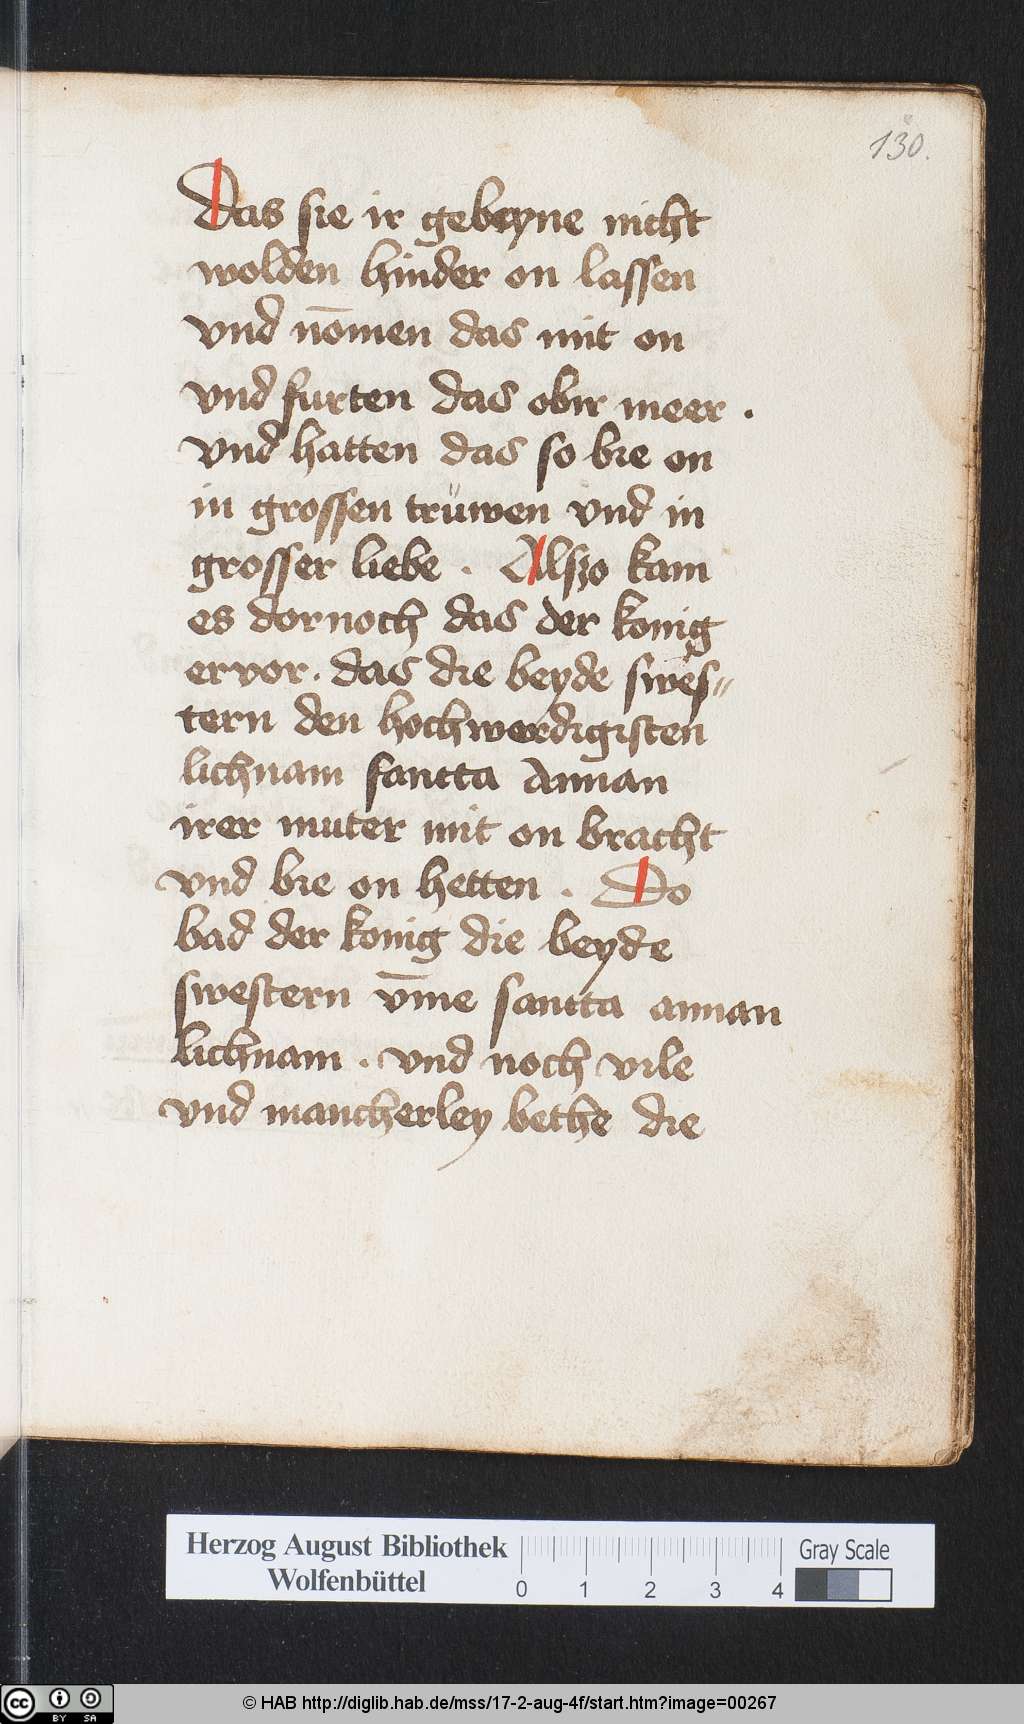 130.
Das sie ir gebeyne nicht
wolden hinder on lassen
vnd nōmen das mit on
vnd furten das obir meer .
vnd hatten das so bie on
in grossen trüwen vnd in
grosser liebe . Alszo kam
es dornoch das der konig
ervor . das die beyde swes„
tern den hochwerdigisten
lichnam sancta Annan
irer muter mit on bracht
vnd bie on hetten . Do
bad der konig die beyde
swestern vm̄e sancta annan
lichnam . vnd noch vile
vnd mancherley bethe die
Herzog August Bibliothek
Wolfenbüttel
0 1 2 3 4
Gray Scale
cc BY SA
© HAB http://diglib.hab.de/mss/17-2-aug-4f/start.htm?image=00267